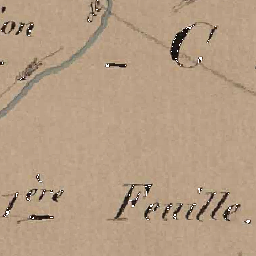 on
- C
1ère Feuille.